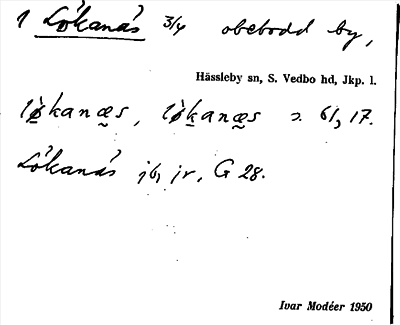 1 Lökanäs 3/4 obebodd by,
Hässleby sn, S. Vedbo hd, Jkp. l.
lø̀kanæs, lø̀kanæs 2. 61, 17.
Lökanäs jb, jr, G 28.
Ivar Modéer 1950